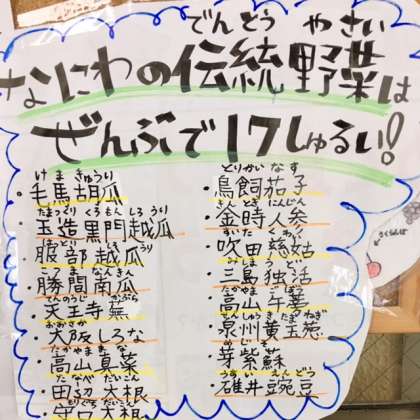 でんとう やさい
なにわの伝統野菜は
ぜんぶで17しゅるい!
けま きゅうり
・毛馬胡瓜
たまつくり くろもん しろ うり
・玉造黒門越瓜
はっとり しろ うり
・服部越瓜
こつま なんきん
・勝間南瓜
てんのうじ かぶら
・天王寺蕪
おおさか
・大阪しな
たかやま まな
・高山真菜
たなべ だいこん
・田辺大根
・守口大根
とりかい なす
・鳥飼茄子
きんとき にんじん
・金時人参
すいた くわい
・吹田慈姑
みしま うど
・三島独活
たかやま ごぼう
・高山牛蒡
せんしゅう き たまねぎ
・泉州黄玉葱
めじそ
・芽紫蘇
うすい えんどう
・碓井豌豆